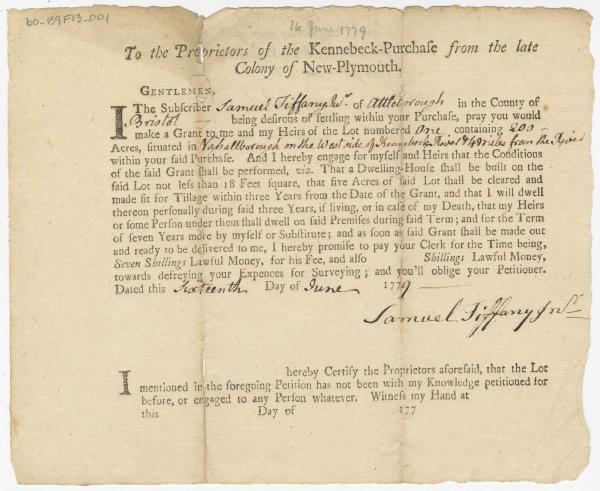 60-89F13-001
16 June 1779
To the Proprietors of the Kennebeck-Purchase from the late
Colony of New-Plymouth.
GENTLEMEN,
I The Subscriber Samuel Tiffany Junr. of Attleborough in the County of
Bristol being desirous of settling within your Purchase, pray you would
make a Grant to me and my Heirs of the Lot numbered One containing 200
Acres, situated in Vassallborough on the West side of Kennebeck River 4 miles from the River
within your said Purchase. And I hereby engage for myself and Heirs that the Conditions
of the said Grant shall be performed, viz. That a Dwelling-House shall be built on the
said Lot not less than 18 Feet square, that five Acres of said Lot shall be cleared and
made fit for Tillage within three Years from the Date of the Grant, and that I will dwell
thereon personally during said three Years, if living, or in case of my Death, that my Heirs
or some Person under them shall dwell on said Premises during said Term; and for the Term
of seven Years more by myself or Substitute; and as soon as said Grant shall be made out
and ready to be delivered to me, I hereby promise to pay your Clerk for the Time being,
Seven Shillings Lawful Money, for his Fee, and also Shillings Lawful Money,
towards defreying your Expences for Surveying; and you'll oblige your Petitioner.
Dated this Sixteenth Day of June 1779
Samuel Tiffany Junr
I hereby Certify the Proprietors aforesaid, that the Lot
mentioned in the foregoing Petition has not been with my Knowledge petitioned for
before, or engaged to any Person whatever. Witness my Hand at
this Day of 177